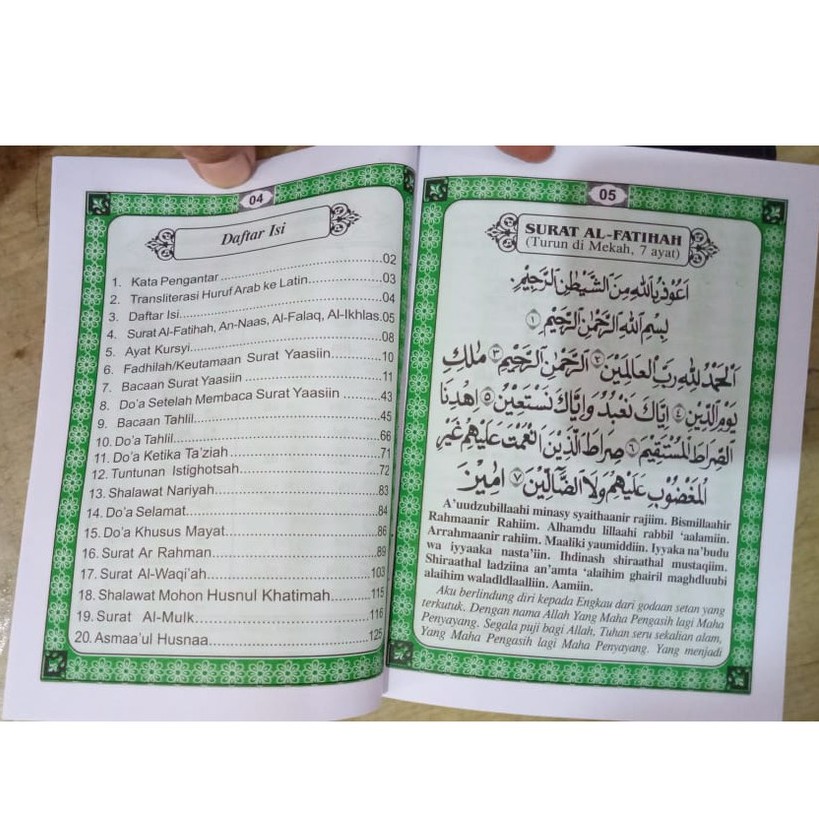 04
Daftar Isi
1. Kata Pengantar ........................................02
2. Transliterasi Huruf Arab ke Latin...................03
3. Daftar Isi................................................04
4. Surat Al-Fatihah, An-Naas, Al-Falaq, Al-Ikhlas.05
5. Ayat Kursyi..............................................08
6. Fadhilah/Keutamaan Surat Yaasiin............10
7. Bacaan Surat Yaasiin ................................11
8. Do'a Setelah Membaca Surat Yaasiin ...........43
9. Bacaan Tahlil...........................................45
10. Do'a Tahlil..............................................66
11. Do'a Ketika Ta'ziah...................................71
12. Tuntunan Istighotsah................................72
13. Shalawat Nariyah.....................................83
14. Do'a Selamat...........................................84
15. Do'a Khusus Mayat...................................86
16. Surat Ar Rahman......................................89
17. Surat Al-Waqi'ah......................................103
18. Shalawat Mohon Husnul Khatimah............115
19. Surat Al-Mulk..........................................116
20. Asmaa'ul Husnaa.....................................125
05
SURAT AL-FATIHAH
(Turun di Mekah, 7 ayat)
اَعُوْذُ بِاللهِ مِنَ الشَّيْطٰنِ الرَّجِيْمِ.
بِسْمِ اللهِ الرَّحْمٰنِ الرَّحِيْمِ ۝١
اَلْحَمْدُ لِلّٰهِ رَبِّ الْعَالَمِيْنَ ۝٢ اَلرَّحْمٰنِ الرَّحِيْمِ ۝٣ مٰلِكِ
يَوْمِ الدِّيْنِ ۝٤ اِيَّاكَ نَعْبُدُ وَاِيَّاكَ نَسْتَعِيْنُ ۝٥ اِهْدِنَا
الصِّرَاطَ الْمُسْتَقِيْمَ ۝٦ صِرَاطَ الَّذِيْنَ اَنْعَمْتَ عَلَيْهِمْ غَيْرِ
الْمَغْضُوْبِ عَلَيْهِمْ وَلَا الضَّآلِّيْنَ ۝٧ اٰمِيْنَ
A'uudzubillaahi minasy syaithaanir rajiim. Bismillaahir
Rahmaanir Rahiim. Alhamdu lillaahi rabbil 'aalamiin.
Arrahmaanir rahiim. Maaliki yaumiddiin. Iyyaka na'budu
wa iyyaaka nasta'iin. Ihdinash shiraathal mustaqiim.
Shiraathal ladziina an'amta 'alaihim ghairil maghdluubi
alaihim waladldlaalliin. Aamiin.
Aku berlindung diri kepada Engkau dari godaan setan yang
terkutuk. Dengan nama Allah Yang Maha Pengasih lagi Maha
Penyayang. Segala puji bagi Allah, Tuhan seru sekalian alam,
Yang Maha Pengasih lagi Maha Penyayang. Yang menjadi